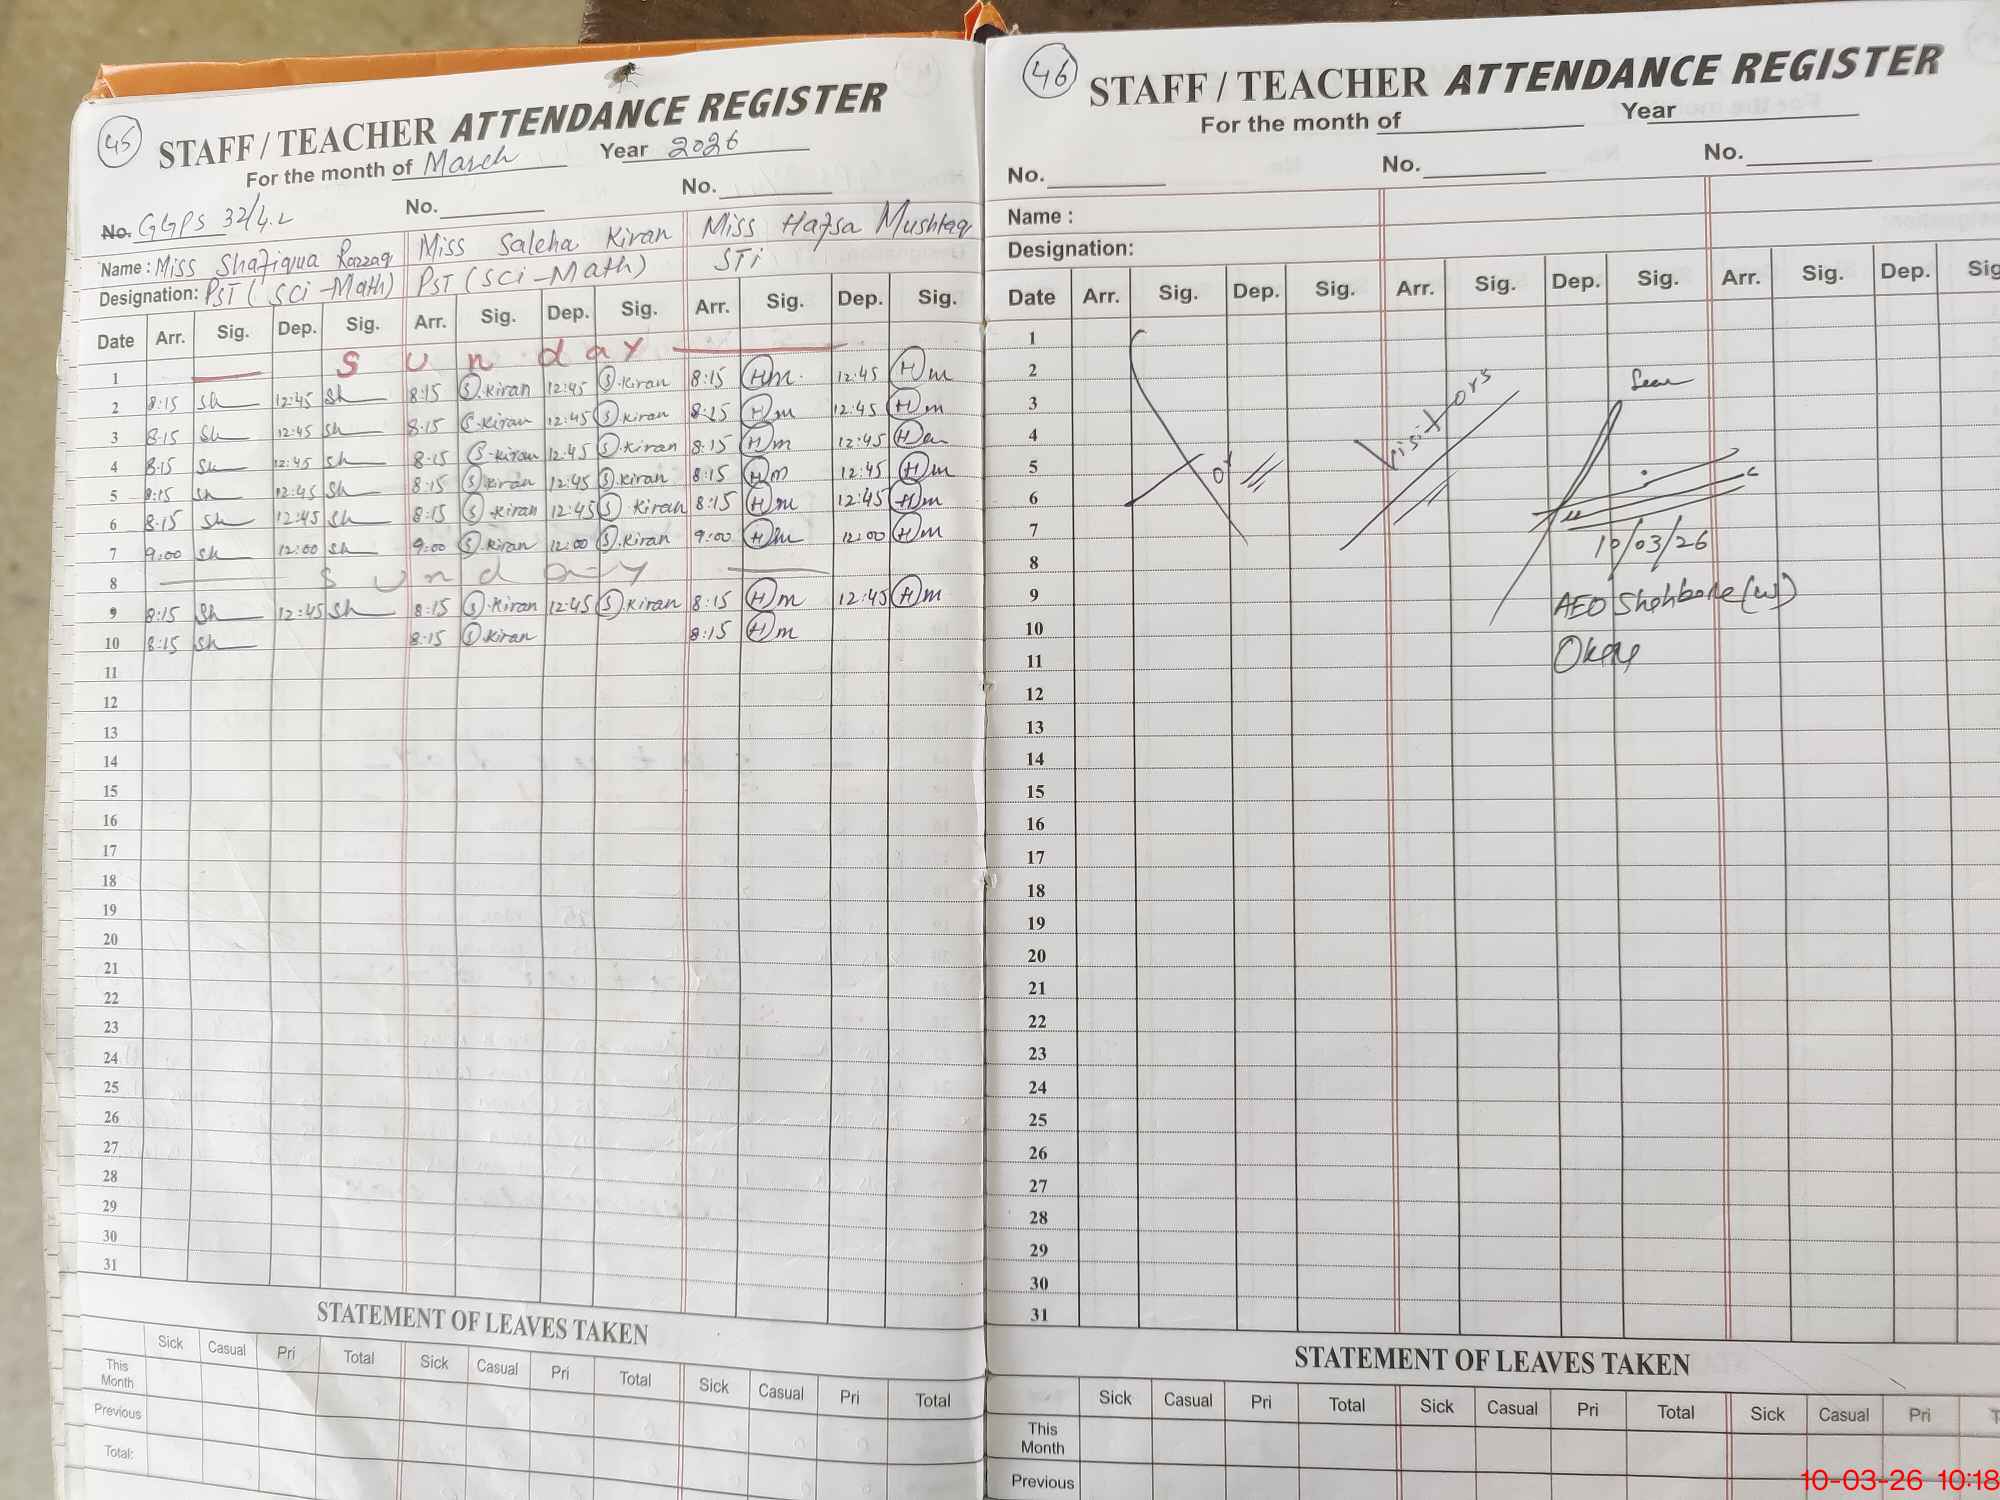 45
STAFF / TEACHER ATTENDANCE REGISTER
For the month of March Year 2026
No. GGPS 32/4.L No. No.
Name : Miss Shafiqua Razzaq Miss Saleha Kiran Miss Hafsa Mushtaq
Designation: PST (Sci-Math) PST (Sci-Math) STi
Date Arr. Sig. Dep. Sig. Arr. Sig. Dep. Sig. Arr. Sig. Dep. Sig.
1 Sunday
2 8:15 Sh 12:45 Sh 8:15 S.Kiran 12:45 S.Kiran 8:15 Hm 12:45 Hm
3 8:15 Sh 12:45 Sh 8:15 S.Kiran 12:45 S.Kiran 8:15 Hm 12:45 Hm
4 8:15 Sh 12:45 Sh 8:15 S.Kiran 12:45 S.Kiran 8:15 Hm 12:45 Hm
5 8:15 Sh 12:45 Sh 8:15 S.Kiran 12:45 S.Kiran 8:15 Hm 12:45 Hm
6 8:15 Sh 12:45 Sh 8:15 S.Kiran 12:45 S.Kiran 8:15 Hm 12:45 Hm
7 9:00 Sh 12:00 Sh 9:00 S.Kiran 12:00 S.Kiran 9:00 Hm 12:00 Hm
8 Sunday
9 8:15 Sh 12:45 Sh 8:15 S.Kiran 12:45 S.Kiran 8:15 Hm 12:45 Hm
10 8:15 Sh 8:15 S.Kiran 8:15 Hm
11
12
13
14
15
16
17
18
19
20
21
22
23
24
25
26
27
28
29
30
31
STATEMENT OF LEAVES TAKEN
Sick Casual Pri Total Sick Casual Pri Total Sick Casual Pri Total
This Month
Previous
Total:
46
STAFF / TEACHER ATTENDANCE REGISTER
For the month of Year
No. No. No.
Name :
Designation:
Date Arr. Sig. Dep. Sig. Arr. Sig. Dep. Sig. Arr. Sig. Dep. Sig
1
2
3 Visitors
4
5
6
7 10/03/26
8
9 AEO Shahbore (w)
10
11
12
13
14
15
16
17
18
19
20
21
22
23
24
25
26
27
28
29
30
31
STATEMENT OF LEAVES TAKEN
Sick Casual Pri Total Sick Casual Pri Total Sick Casual Pri T
This Month
Previous
10-03-26 10:18